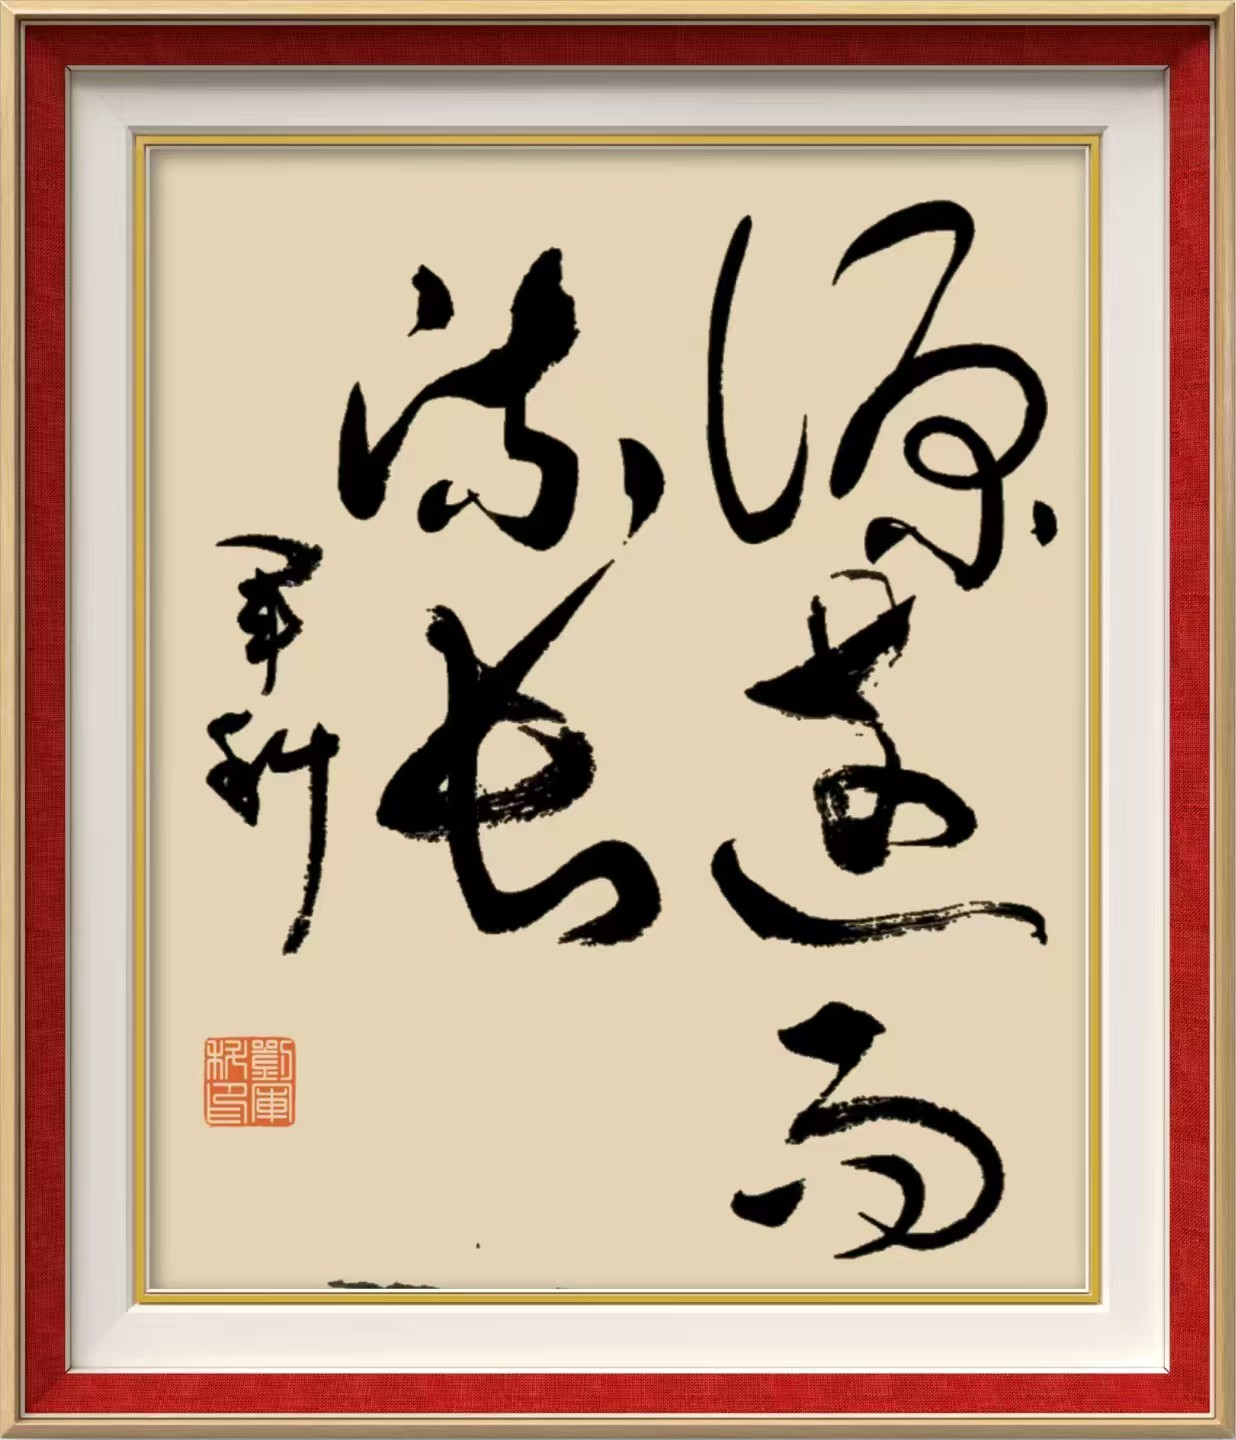 源遠而
流長
軍科
劉軍
科印